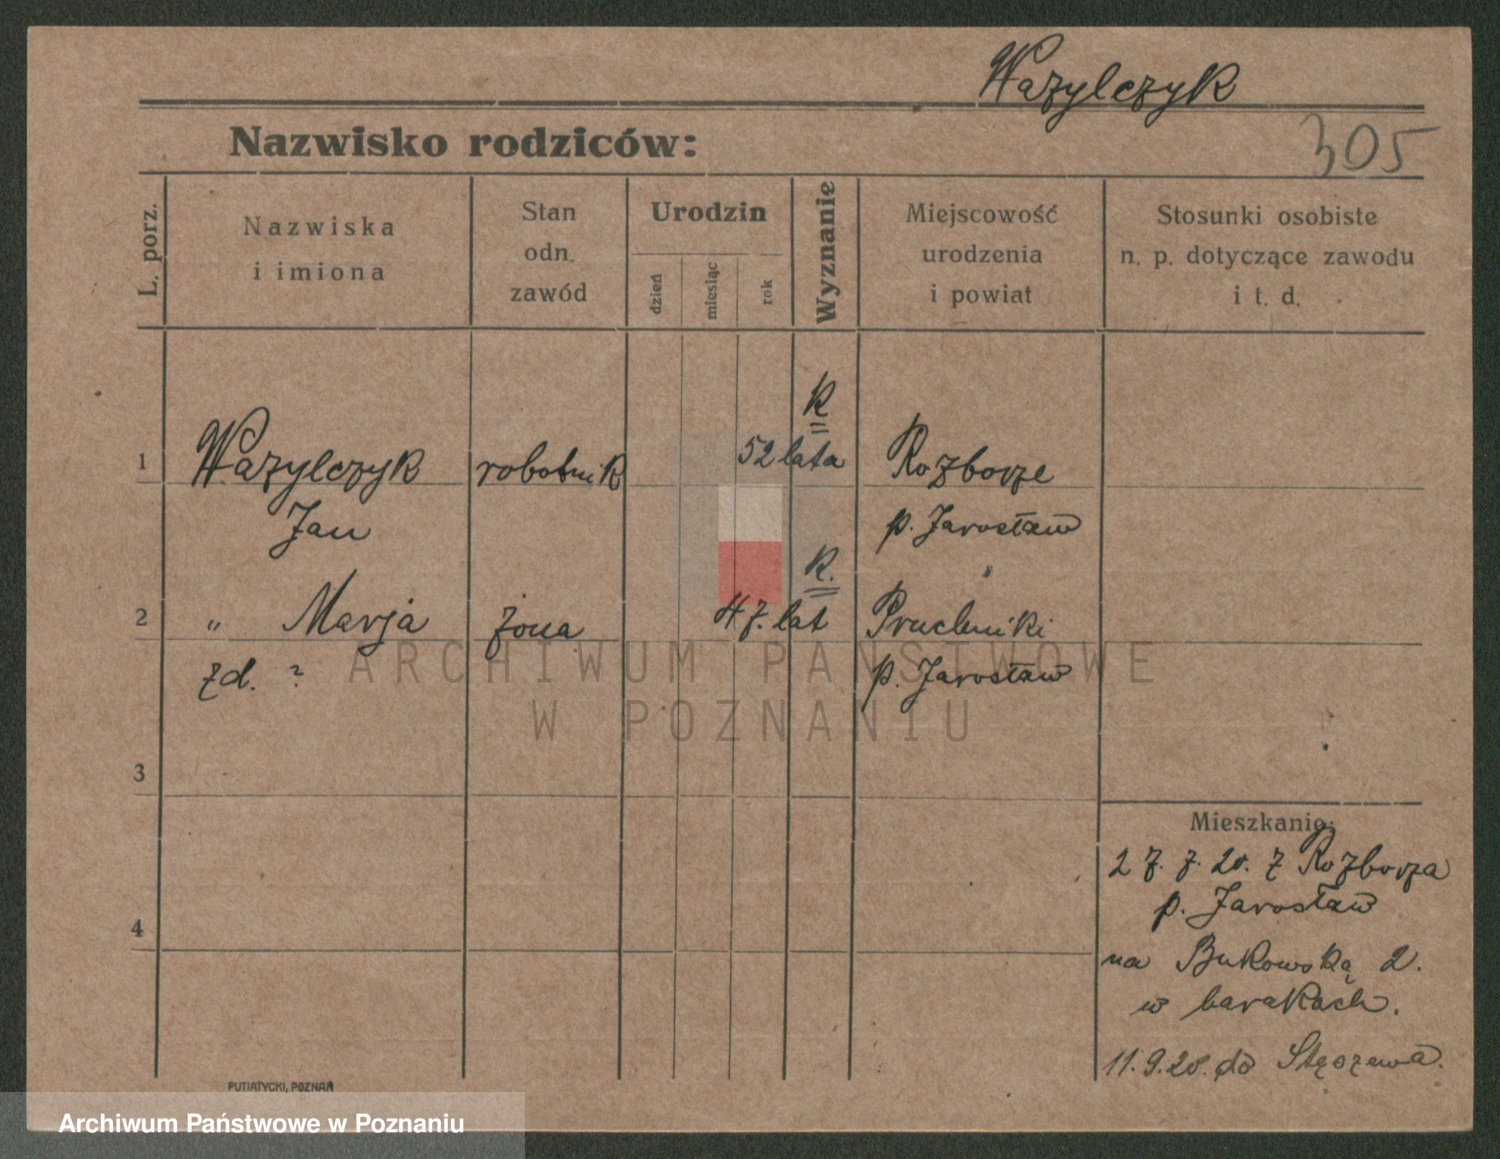 Wazylczyk
305
Nazwisko rodziców:
L. porz.
Nazwiska
i imiona
Stan
odn.
zawód
Urodzin
dzień
miesiąc
rok
Wyznanie
Miejscowość
urodzenia
i powiat
Stosunki osobiste
n. p. dotyczące zawodu
i t. d.
K
1 Wazylczyk robotnik 52 lata Rozborze
Jan p. Jarosław
K.
2 " Marja żona 47. lat Pruchniki
zd. ? p. Jarosław
ARCHIWUM PAŃSTWOWE
W POZNANIU
3
4
Mieszkanie:
27.7.20. z Rozborza
p. Jarosław
na Bukowską 2.
w barakach.
11.9.20. do Stęszewa.
PUTIATYCKI, POZNAŃ
Archiwum Państwowe w Poznaniu